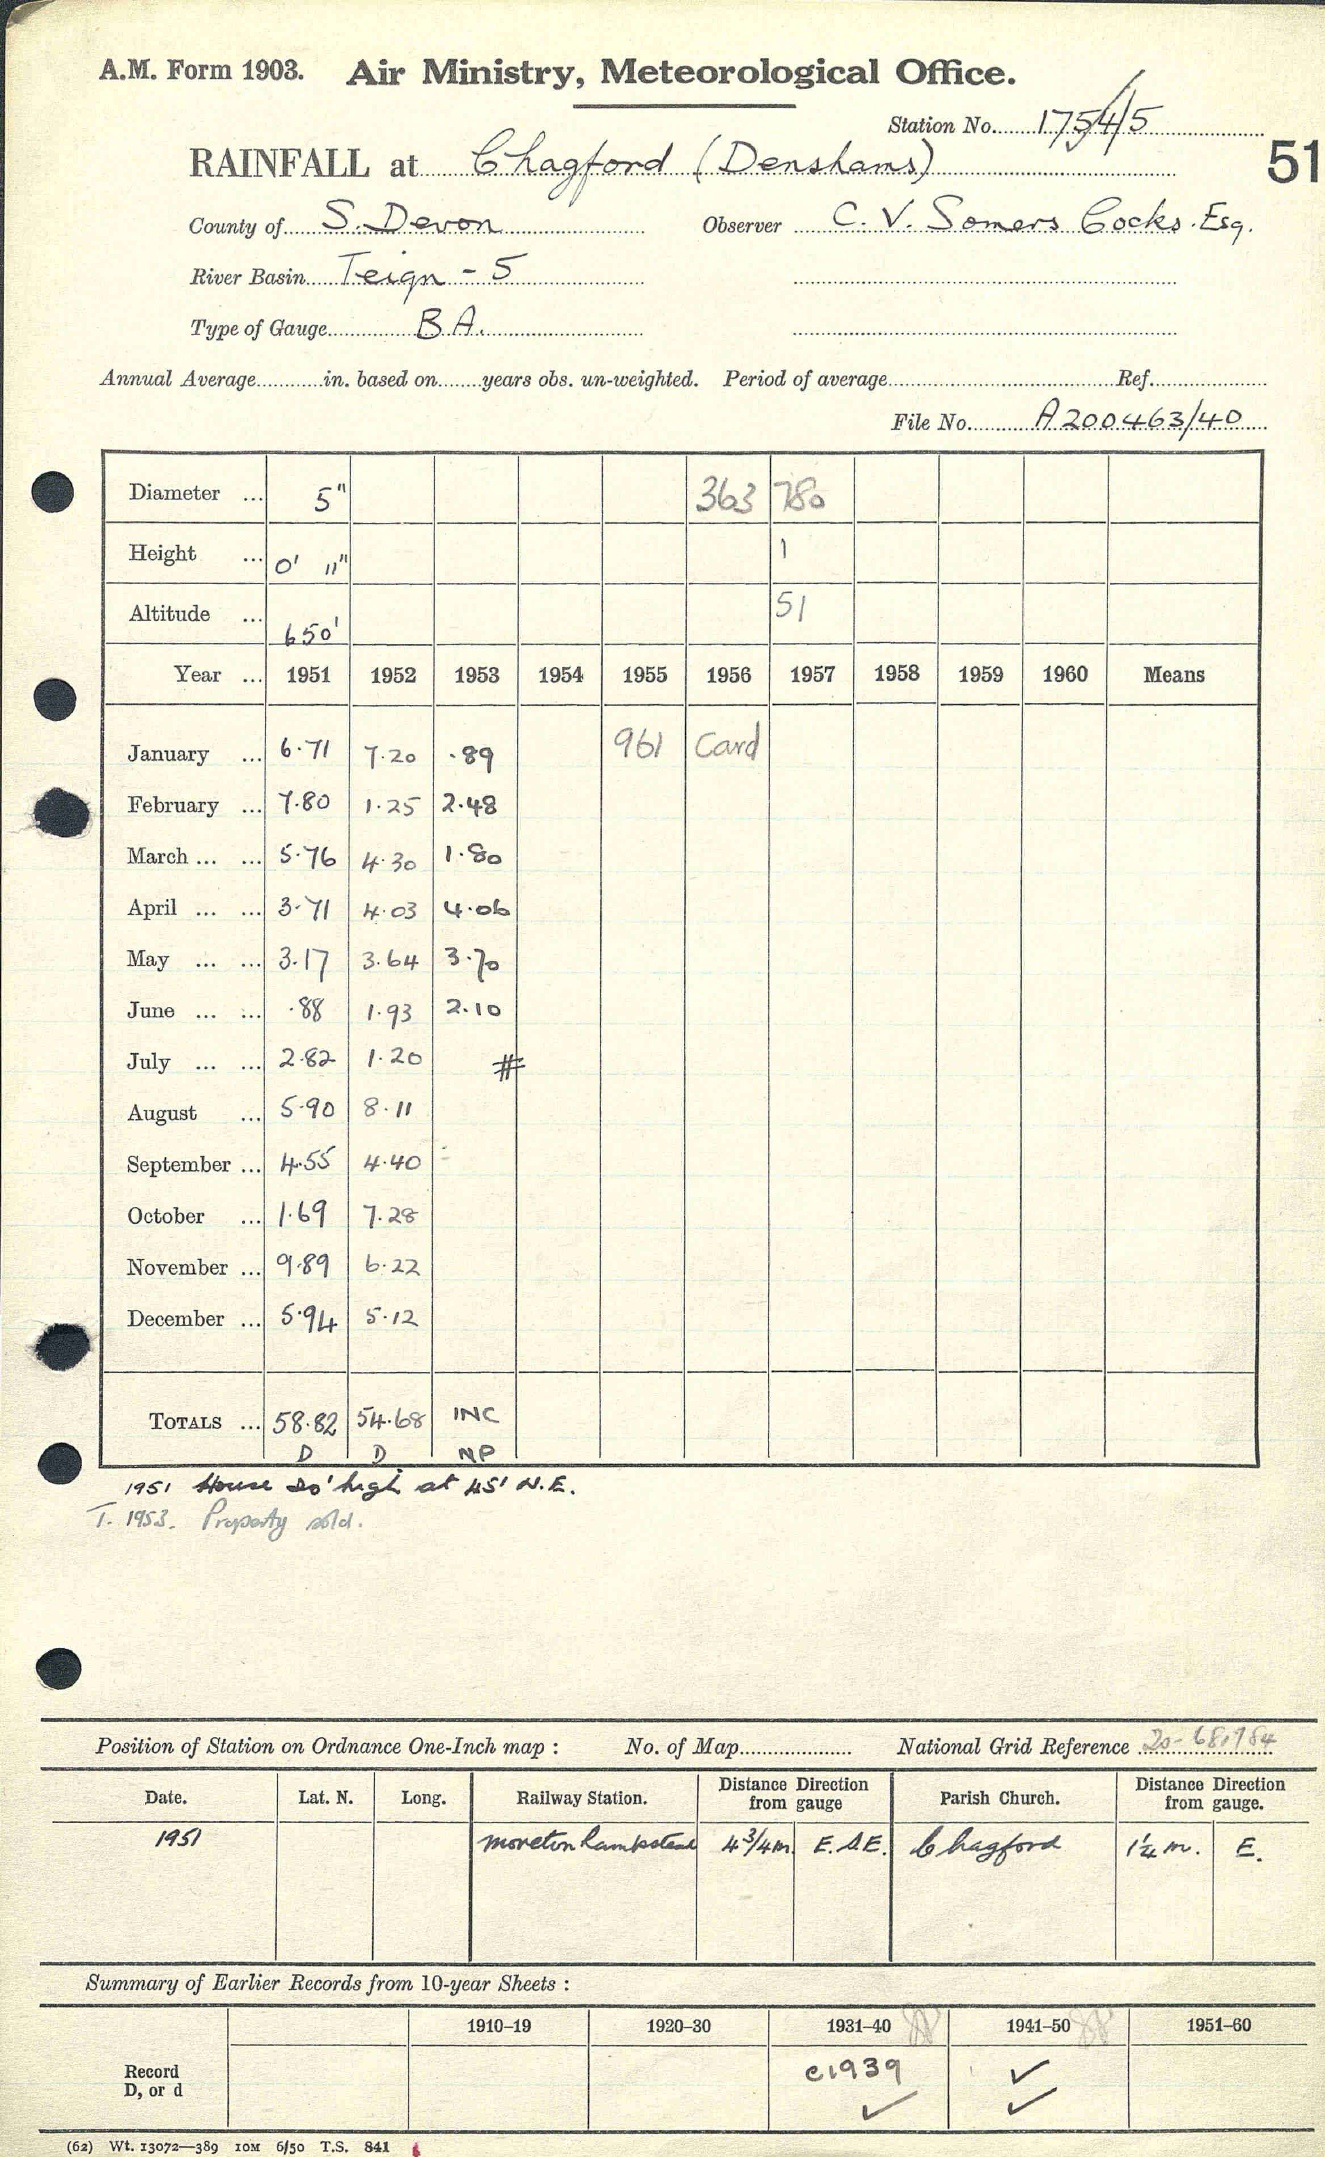 A.M. Form 1903. Air Ministry, Meteorological Office.
Station No. 1754/5
51
RAINFALL at Chagford (Denshams)
County of S. Devon Observer C. V. Somers Cocks Esq.
River Basin Teign - 5
Type of Gauge B A.
Annual Average in. based on years obs. un-weighted. Period of average Ref.
File No. A200463/40
Diameter ... 5" 363 780
Height ... 0' 11" 1
Altitude ... 650' 51
Year ... 1951 1952 1953 1954 1955 1956 1957 1958 1959 1960 Means
January ... 6.71 7.20 .89 961 Card
February ... 7.80 1.25 2.48
March ... ... 5.76 4.30 1.80
April ... ... 3.71 4.03 4.06
May ... ... 3.17 3.64 3.70
June ... ... .88 1.93 2.10
July ... ... 2.82 1.20 #
August ... 5.90 8.11
September ... 4.55 4.40
October ... 1.69 7.28
November ... 9.89 6.22
December ... 5.94 5.12
TOTALS ... 58.82 54.68 INC
D D NP
1951 House 20' high at 45' N.E.
T. 1953. Property sold.
Position of Station on Ordnance One-Inch map : No. of Map National Grid Reference 20-
Date. Lat. N. Long. Railway Station. Distance from gauge Direction Parish Church. Distance from gauge. Direction
1951 Moretonhampstead 4 3/4 m. E.S.E. Chagford 1 1/4 m. E.
Summary of Earlier Records from 10-year Sheets :
1910-19 1920-30 1931-40 1941-50 1951-60
Record c1939 ✓
D, or d ✓ ✓
(62) Wt. 13072—389 10M 6/50 T.S. 841